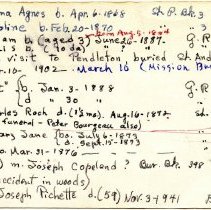 ma Agnes b. Apr. 6-1868 St. P. Bk. 3
line b. Feb. 20-1870
m b. (aged 3) June 26-1887. G.R
s b. (90 da) "
visit to Pendleton, buried St. And
10-1902 - March 16 (Mission Bu
" b. Jan. 3-1888 G.R
d " 30 "
rles Roch d. (1½ mo). Aug. 16-1872
funeral - Peter Bourgeau also)
ary Jane (bo. July 6-1873
d. Sept. 15-1873
o. Mar. 31-1876
) m. Joseph Copeland ? Bur. Bk. 398
ccident in woods)
Joseph Pichette d. (59) Nov. 3-1941